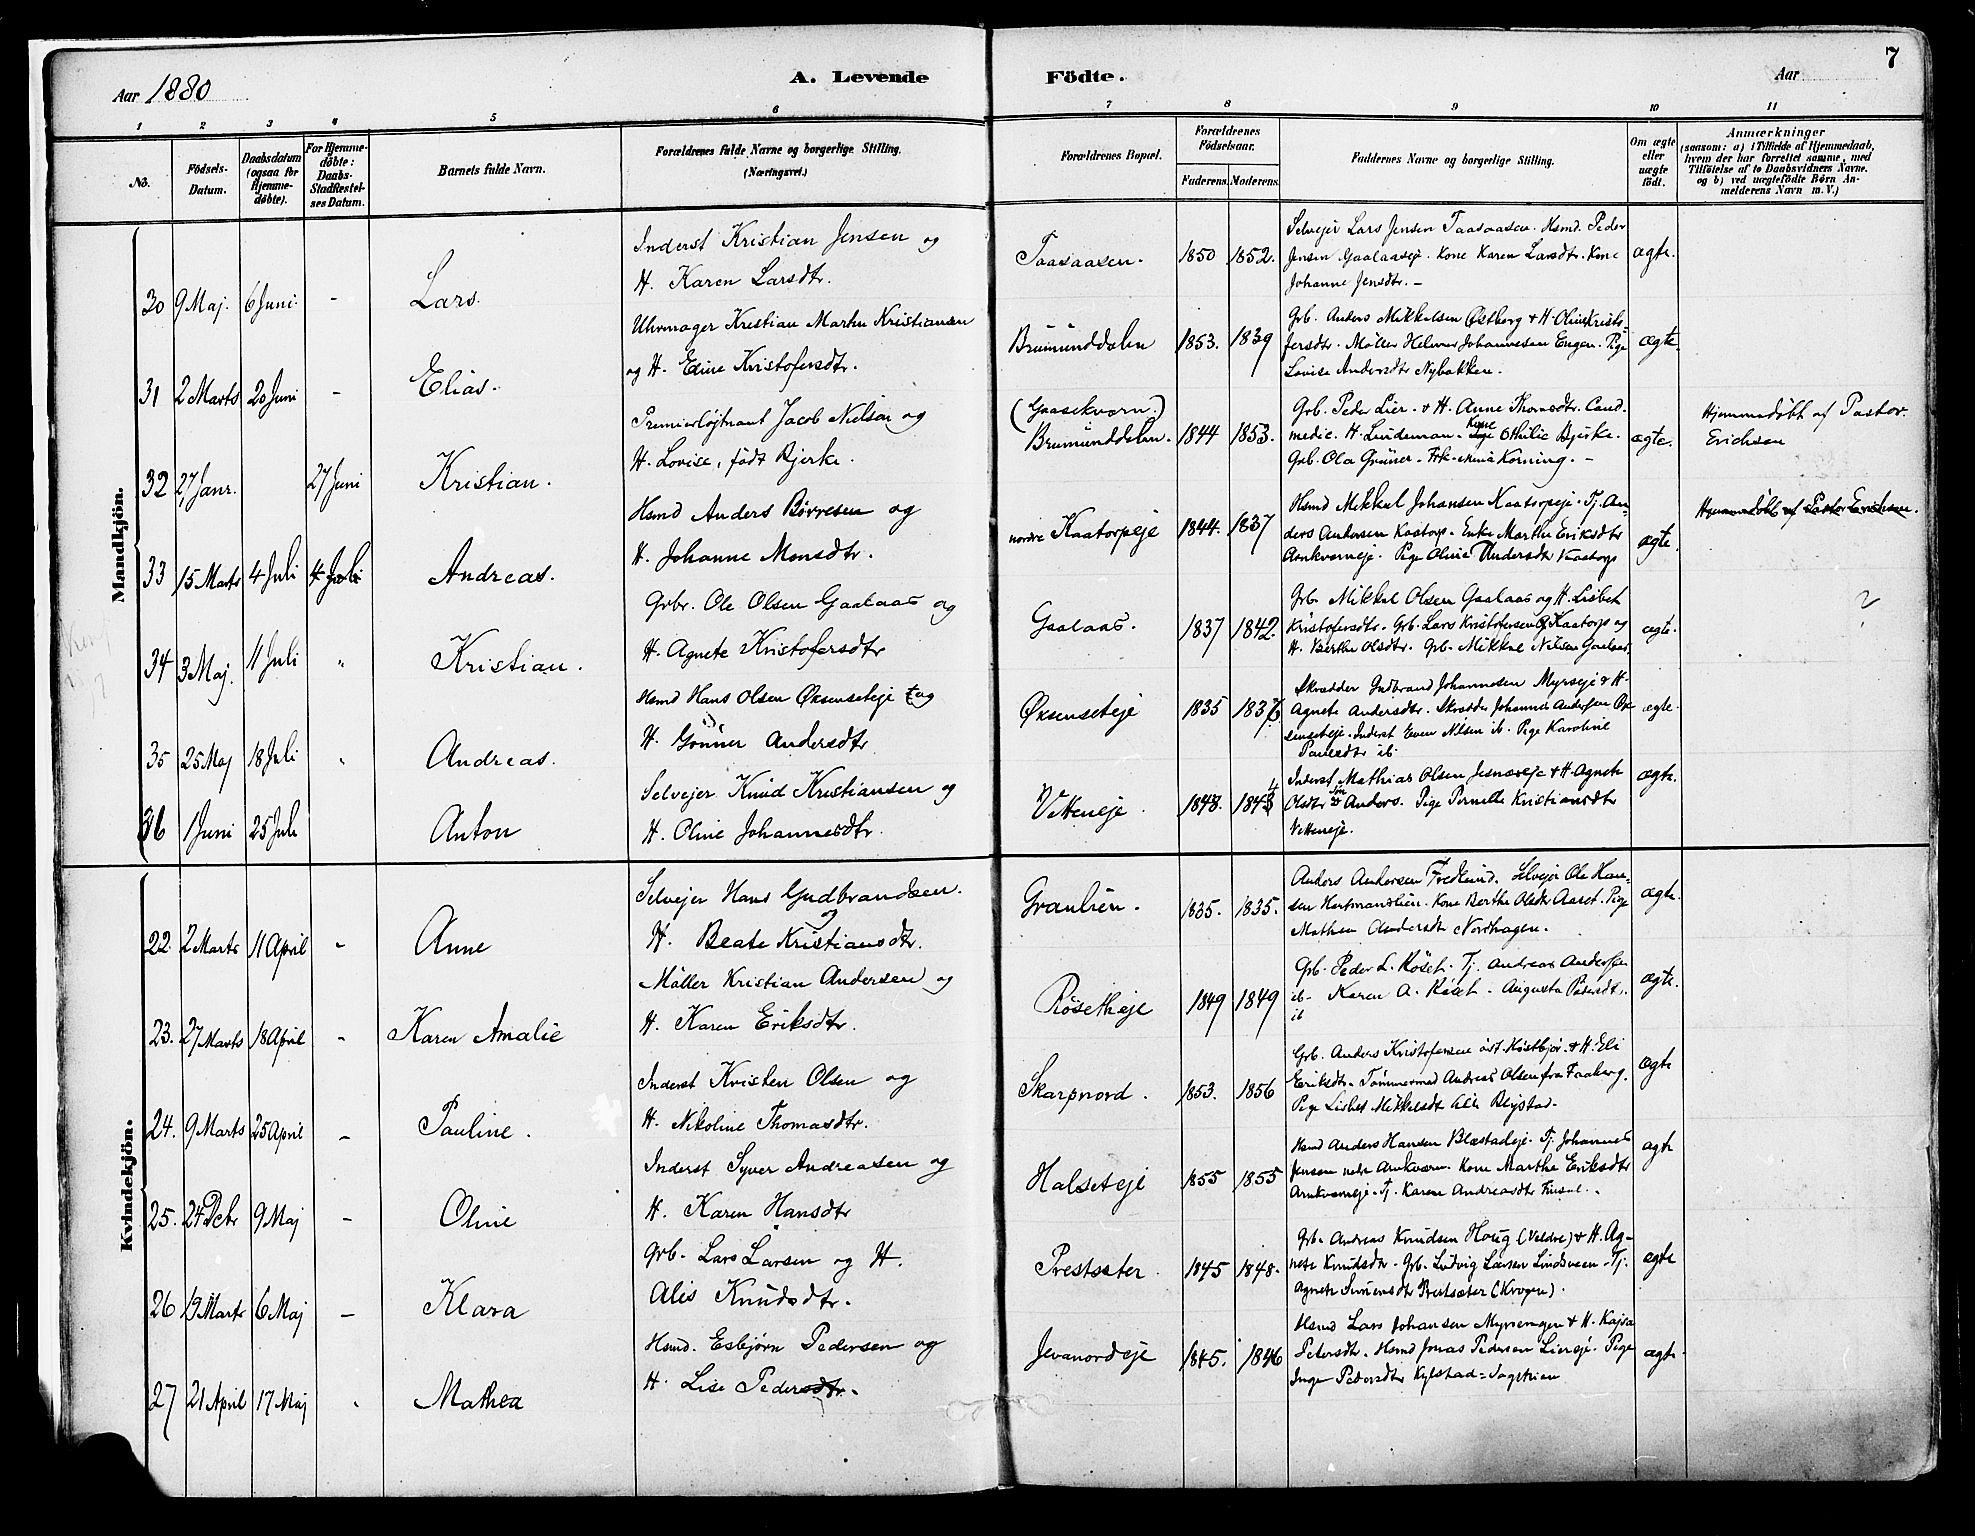 7
Aar 1880
A. Levende Födte.
Aar
1 2 3 4 5 6 7 8 9 10 11
No.
Födsels-
Datum.
Daabsdatum
(ogsaa for
Hjemme-
döbte).
For Hjemme-
döbte:
Daabs-
Stadfestel-
ses Datum.
Barnets fulde Navn.
Forældrenes fulde Navne og borgerlige Stilling.
(Næringsvei.)
Forældrenes Bopæl.
Forældrenes
Födselsaar.
Faderens. Moderens.
Faddernes Navne og borgerlige Stilling.
Om ægte
eller
uægte
födt.
Anmærkninger
(saasom: a) i Tilfælde af Hjemmedaab,
hvem der har forrettet samme, med
Tilföielse af to Daabsvidners Navne,
og b) ved uægtefödte Börn An-
melderens Navn m. V.)
Mandkjön.
30 9 Maj. 6 Juni. - Lars.
Inderst Kristian Jensen og
H. Karen Larsdtr.
Taasaasen. 1850 1852.
Selvejer Lars Jensen Taasaasen. Hsmd. Peder
Jensen Gaalaaseje. Kone Karen Larsdtr. Kone
Johanne Jensdtr. -
ægte.
31 2 Marts 20 Juni - Elias.
Uhrmager Kristian Martin Kristiansen
og H. Eline Kristofersdtr.
Brumunddalen 1853. 1839
Grb. Anders Mikkelsen Østborg & H. Oline Kristo-
fersdtr. Møller Helmer Johannesen Engen. Pige
Lovise Andersdtr Nybakken.
ægte.
32 27 Janr. 27 Juni Kristian.
Premierløjtnant Jacob Nielsen og
H. Lovise, født Bjerke.
(Gaasekværn.)
Brumunddalen. 1844 1853.
Grb. Peder Lier. & H. Anne Thomsdtr. Cand.
medic. H. Lindeman. Kone Othilie Bjerke.
Grb. Ola Grüner. Frk. Korning. -
ægte.
Hjemmedøbt af Pastor
Erichsen
33 15 Marts 4 Juli 4 Juli Andreas.
Hsmd Anders Børresen og
H. Johanne Monsdtr.
nordre Kaatorpeje 1844. 1837
Hsmd Mikkel Johansen Kaatorpeje. Tj. An-
ders Andersen Kaatorp. Enke Marthe Eriksdtr
Aankværneje. Pige Oline Andersdtr Kaatorp
ægte.
Hjemmedøbt af Pastor Erichsen.
34 3 Maj. 11 Juli " Kristian.
Grbr. Ole Olsen Gaalaas og
H. Agnete Kristofersdtr
Gaalaas. 1837 1842.
Grb. Mikkel Olsen Gaalaas og H. Lisbet
Kristofersdtr. Grb. Lars Kristofersen Kaatorp og
H. Berthe Olsdtr. Grb. Mikkel Nilsen Gaalaas.
ægte.
?
35 25 Maj 18 Juli " Andreas.
Hsmd Hans Olsen Øksenseteje og
H. Gønner Andersdtr
Øksenseteje 1835
Skrædder Gudbrand Johannesen Myrseje & H.
Agnete Andersdtr. Skrædder Johannes Andersen Øk-
senseteje. Inderst Even Nilsen ib. Pige Karoline
Paulsdtr ib.
ægte.
36 1 Juni 25 Juli Anton
Selvejer Knud Kristiansen og
H. Oline Johannesdtr.
Vetteneje. 1848.
Inderst Mathias Olsen Jesnæseje & H. Agnete
Olsdtr Anders. Pige Pernelle Kristiansdtr
Vetteneje.
ægte.
Kvindekjön.
22. 2 Marts 11 April - Anne
Selvejer Hans Gudbrandsen.
og
H. Beate Kristiansdtr.
Granlien. 1835. 1835.
Anders Andersen Fredlund. Selvejer Ole Han-
sen Hermanslien. Kone Berthe Olsdtr Aaset. Pige
Mathea Andersdtr Nordhagen.
ægte.
23. 27 Marts 18 April - Karen Amalie
Møller Kristian Andersen og
H. Karen Eriksdtr.
Røsetheje 1849 1849
Grb. Peder L. Røset. Tj. Andreas Andersen
ib. Karen A. Røset. Augusta Pedersdtr.
ib
ægte.
24. 9 Marts 25 April - Pauline.
Inderst Kristen Olsen og
H. Nikoline Thomasdtr.
Skarpnord. 1853. 1856
Grb. Anders Kristofersen øst. Høstbjør. & H. Eli
Eriksdtr. Tømmermd Andreas Olsen fra Faaberg.
Pige Lisbet Mikkelsdt Blystad.
ægte
25. 24 Febr 9 Maj - Oline
Inderst Syver Andreasen og
H. Karen Hansdtr
Halseteje 1855 1855
Hsmd Anders Hansen Blæstadeje. Tj. Johannes
Jensen nedr Arnkværn. Kone Marthe Eriksdtr
Arnkværneje. Tj. Karen Andreasdtr
ægte
26 19 Marts 6 Maj - Klara
Grb. Lars Larsen og H.
Alis Knudsdtr.
Prestsæter. 1845 1848.
Grb. Andreas Knudsen Houg (Veldre) & H. Ag-
nete Knudsdtr. Grb. Ludvig Larsen Lindsveen. Tj.
Agnete Simensdtr Prestsæter (Krogen).
ægte
27 21 April 17 Maj " Mathea
Hsmd. Esbjørn Pedersen og
H. Lise Pedersdtr.
Jevanordeje 1845. 1846
Hsmd Lars Johansen Myrengen & H. Kajsa
Petersdtr. Hsmd Jonas Pedersen Liereje. Pige
Inge Petersdtr Kylstad-
ægte.